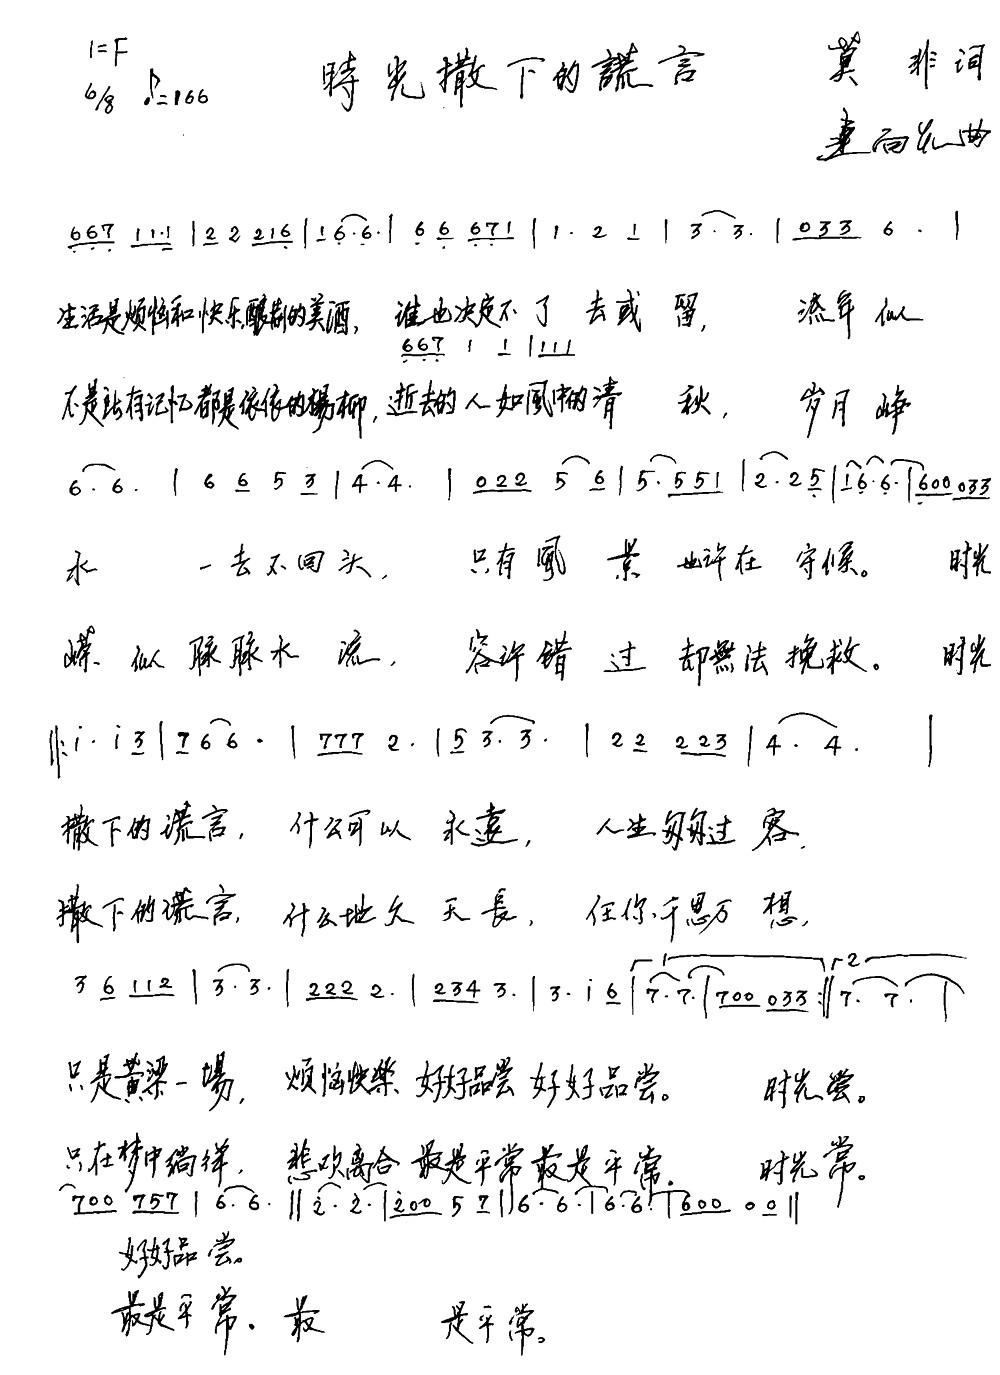 1=F 時光撒下的謊言 莫非词
6/8 ♪=166 曲
667 111 | 2 2 216 | 16·6· | 6 6 671 | 1· 2 1 | 3·3· | 033 6· |
生活是烦恼和快乐酿制的美酒, 谁也决定不了去或留, 流年似
667 1 1 | 111
不是所有记忆都是依依的楊柳, 逝去的人如風中的清秋, 岁月峥
6·6· | 6 6 5 3 | 4·4· | 022 5 6 | 5·551 | 2·25 | 16·6· | 600 033
水 一去不回头, 只有風景也许在守候。 时光
嵘似脉脉水流, 容许错过却無法挽救。 时光
‖: i· i 3 | 7 6 6· | 777 2· | 5 3·3· | 2 2 223 | 4· 4· |
撒下的谎言, 什么可以永遠, 人生匆匆过客,
撒下的谎言, 什么地久天長, 任你千思万想,
3 6 112 | 3·3· | 222 2· | 234 3· | 3· i 6 | 1 7·7· | 700 033 :‖ 2 7· 7· |
只是黄梁一場, 烦恼快樂 好好品尝 好好品尝。 时光尝。
只在梦中徜徉, 悲欢离合 最是平常 最是平常. 时光常。
700 757 | 6·6· ‖ 2·2· | 200 5 7 ‖ 6·6· | 6·6· | 600 00 ‖
好好品尝。
最是平常. 最 是平常。